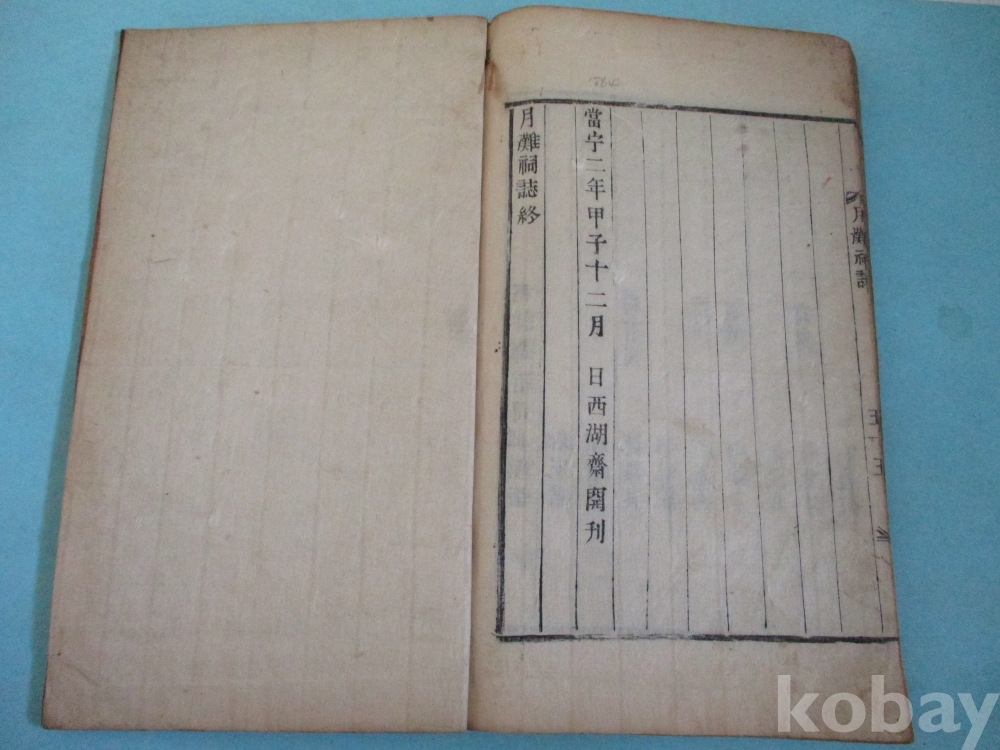 月灘祠誌
當宁二年甲子十二月 日西湖齋開刊
月灘祠誌終
kobay